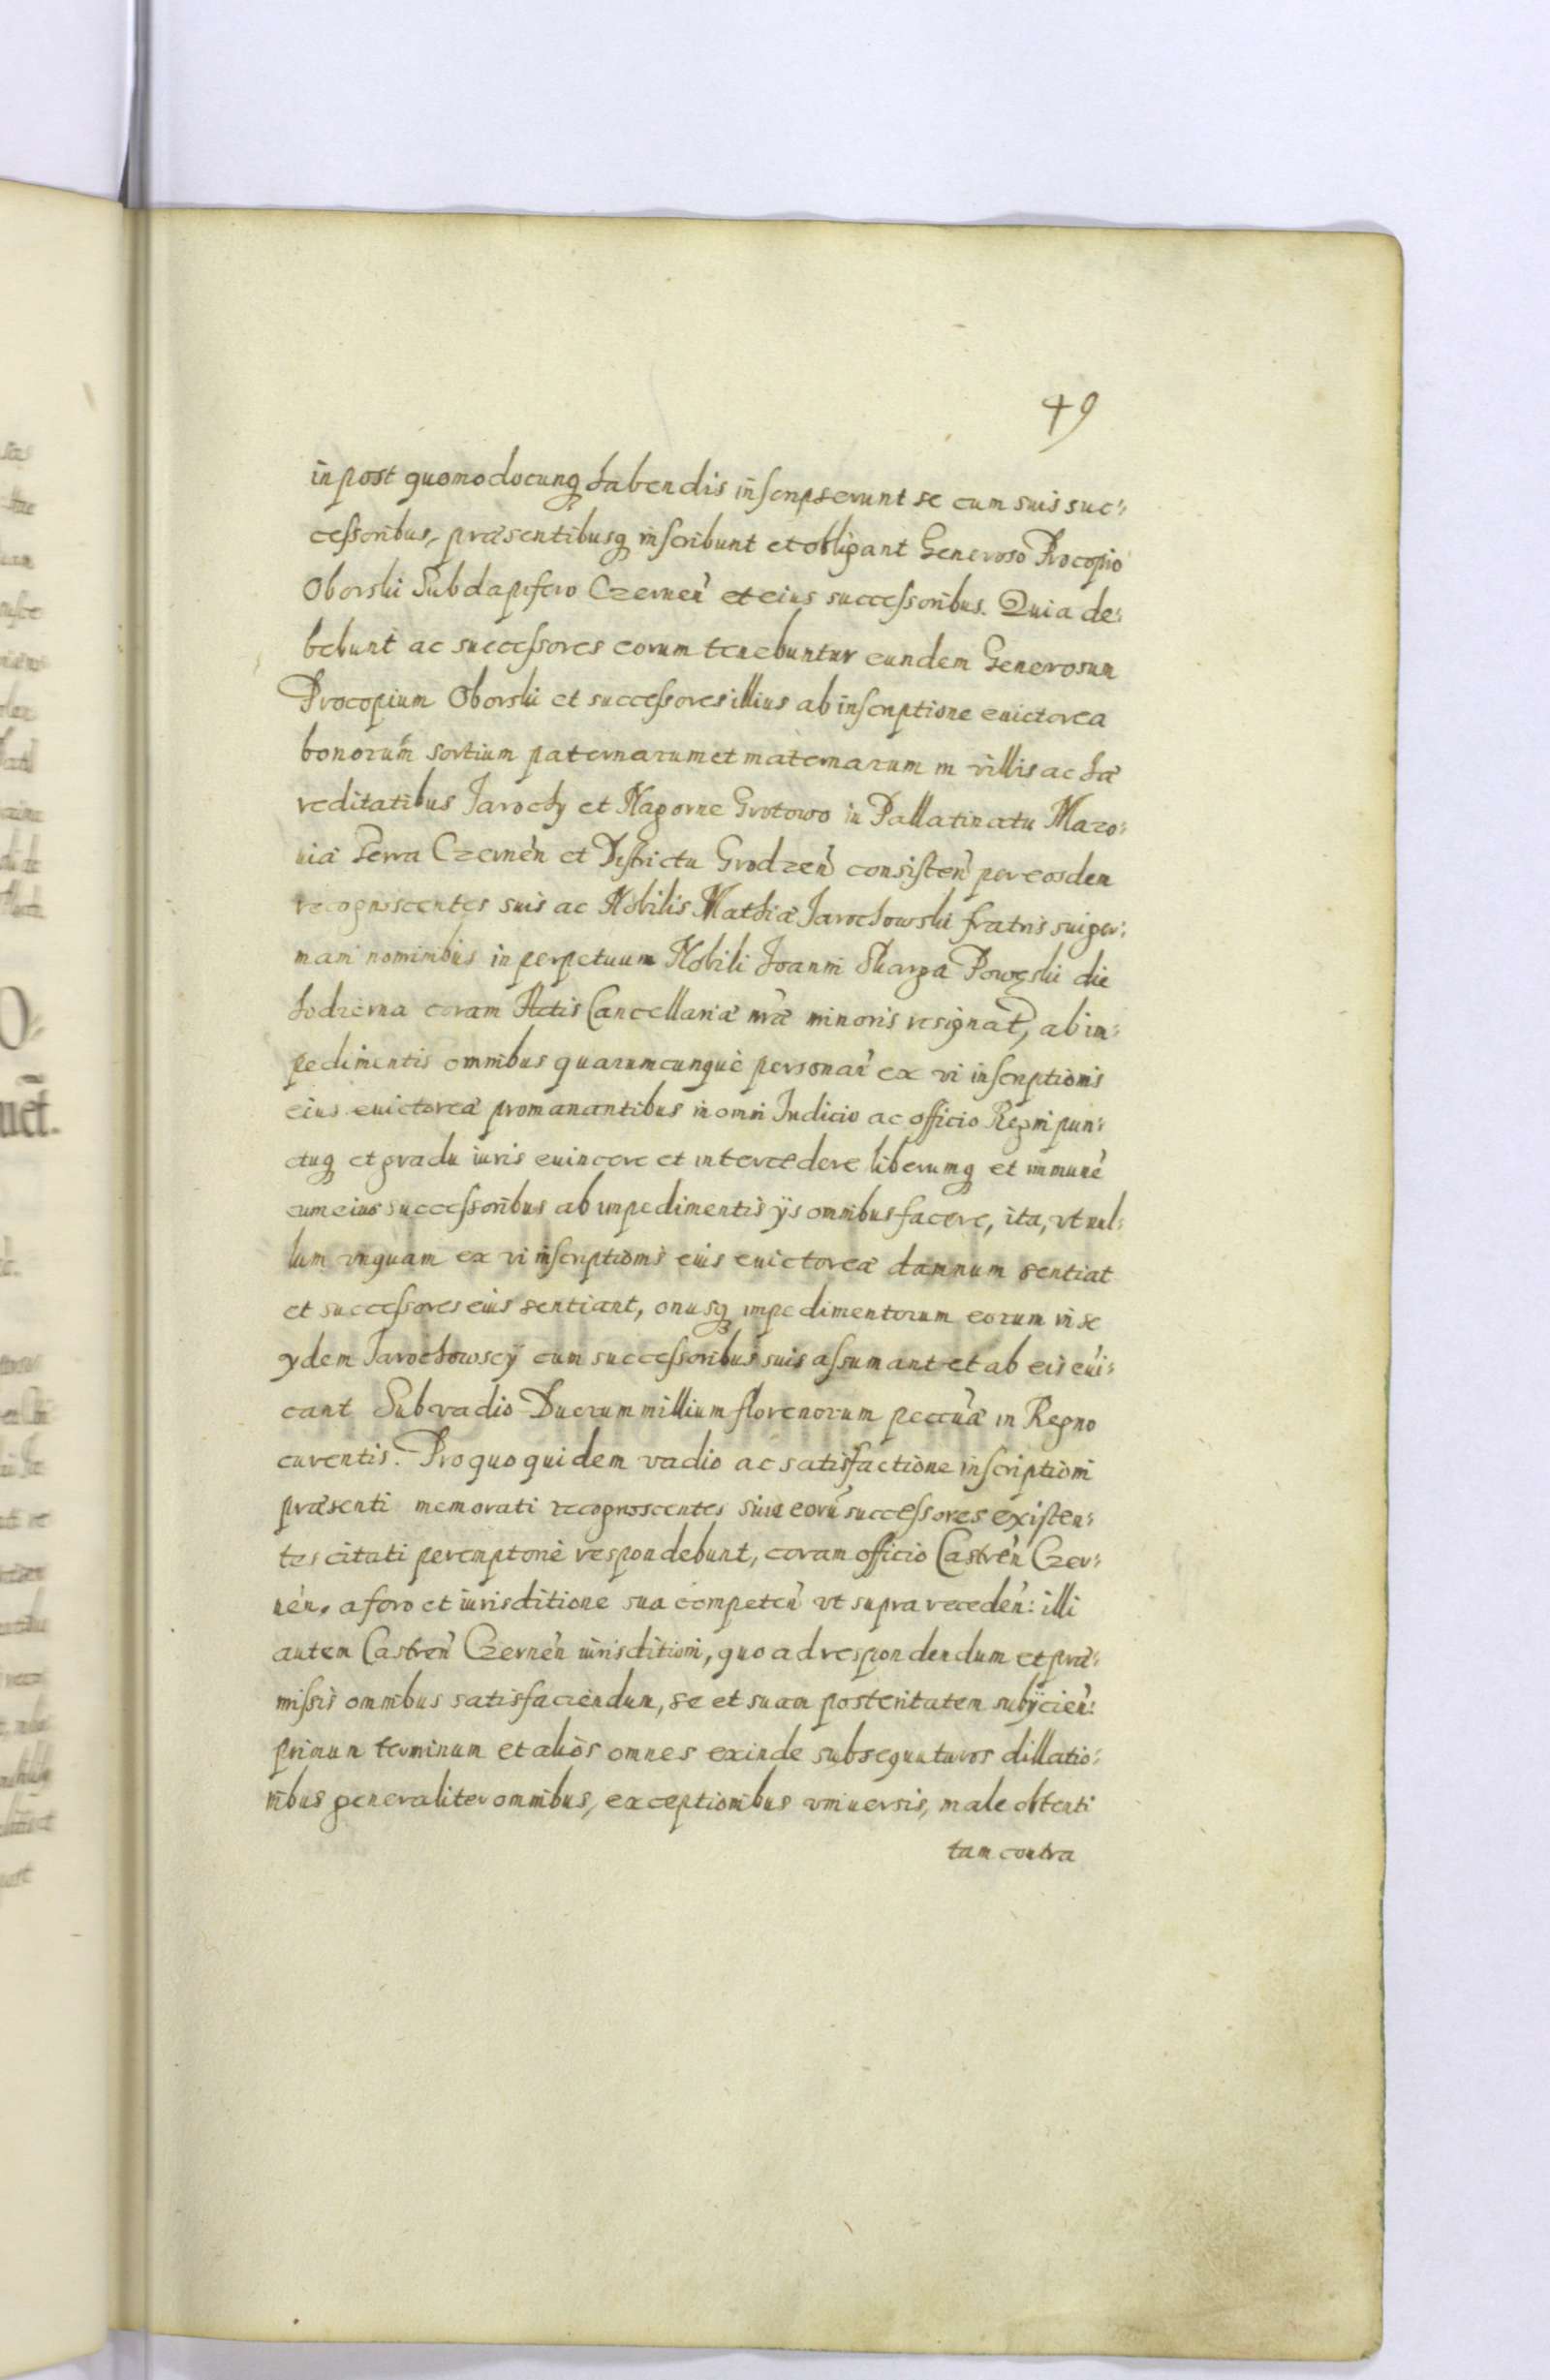 49
in post quomodocunq habendis inscripserunt se cum suis suc:
cessoribus, præsentibusq inscribunt et obligant Generoso Procopio
Oborski Subdapifero Czernen̄ et eius successoribus. Quia de:
bebunt ac successores eorum tenebuntur eundem Generosum
Procopium Oborski et successores illius ab inscriptione euictorea
bonorum sortium paternarum et maternarum in villis ac hæ
reditatibus Jarochy et Nagorne Grotowo in Pallatinatu Mazo:
uiæ Terra Czernen̄ et Districtu Grodzen̄ consisten̄ per eosdem
recognoscentes suis ac Nobilis Mathiæ Jarochowski fratris sui ger:
mani nominibus in perpetuum Nobili Joanni Skarga Powęski die
hodierna coram Actis Cancellariæ nr̄æ minoris resignat, ab im:
pedimentis omnibus quarumcunque personar̄ ex vi inscriptionis
eius euictoreæ promanantibus in omni Iudicio ac officio Regni pun:
ctuq et gradu iuris euincere et intercedere liberumq et immune
cum eius successoribus ab impedimentis ijs omnibus facere, ita, vt nul:
lum vnquam ex vi inscriptionis eius euictoreæ damnum sentiat
et successores eius sentiant, onusq impedimentorum eorum in se
ydem Jarochowscij cum successoribus suis assumant et ab eis eui:
cant Sub vadio Duorum millium florenorum peccuæ in Regno
curentis. Pro quo quidem vadio ac satisfactione inscriptioni
præsenti memorati recognoscentes siue eorū successores existen:
tes citati peremptorie respondebunt, coram officio Castren̄ Czer:
nen̄. a foro et iurisditione sua competen̄ vt supra receden̄: illi
autem Castren̄ Czernen̄ iurisditioni, quo ad respondendum et præ:
missis omnibus satisfaciendum, se et suam posteritatem subijcien̄:
primum terminum et alios omnes exinde subsequuturos dillatio:
nibus generaliter omnibus, exceptionibus vniuersis, male obtenti
tam contra